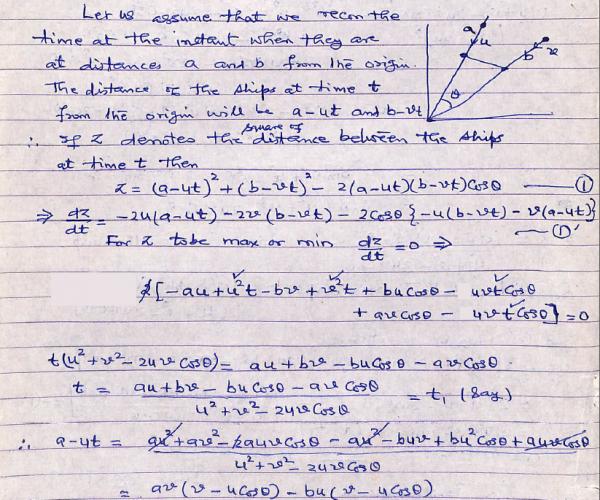 Let us assume that we recon the
time at the instant when they are
at distances a and b from the origin.
The distance of the ships at time t
from the origin will be a-ut and b-vt
∴ If z denotes the square of distance between the ships
at time t then
z = (a-ut)² + (b-vt)² - 2(a-ut)(b-vt)Cosθ —— ①
⇒ dz/dt = -2u(a-ut) - 2v(b-vt) - 2Cosθ{-u(b-vt) - v(a-ut)} —— ①'
For z to be max or min dz/dt = 0 ⇒
2[-au + u²t - bv + v²t + bu Cosθ - uvt Cosθ
+ av Cosθ - uvt Cosθ] = 0
t(u² + v² - 2uv Cosθ) = au + bv - bu Cosθ - av Cosθ.
t = (au + bv - bu Cosθ - av Cosθ)/(u² + v² - 2uv Cosθ) = t₁ (Say)
∴ a-ut = (au² + av² - 2auv Cosθ - au² - buv + bu² Cosθ + auv Cosθ)/(u² + v² - 2uv Cosθ)
= av(v - u Cosθ) - bu(v - u Cosθ)
a
u
b
v
θ